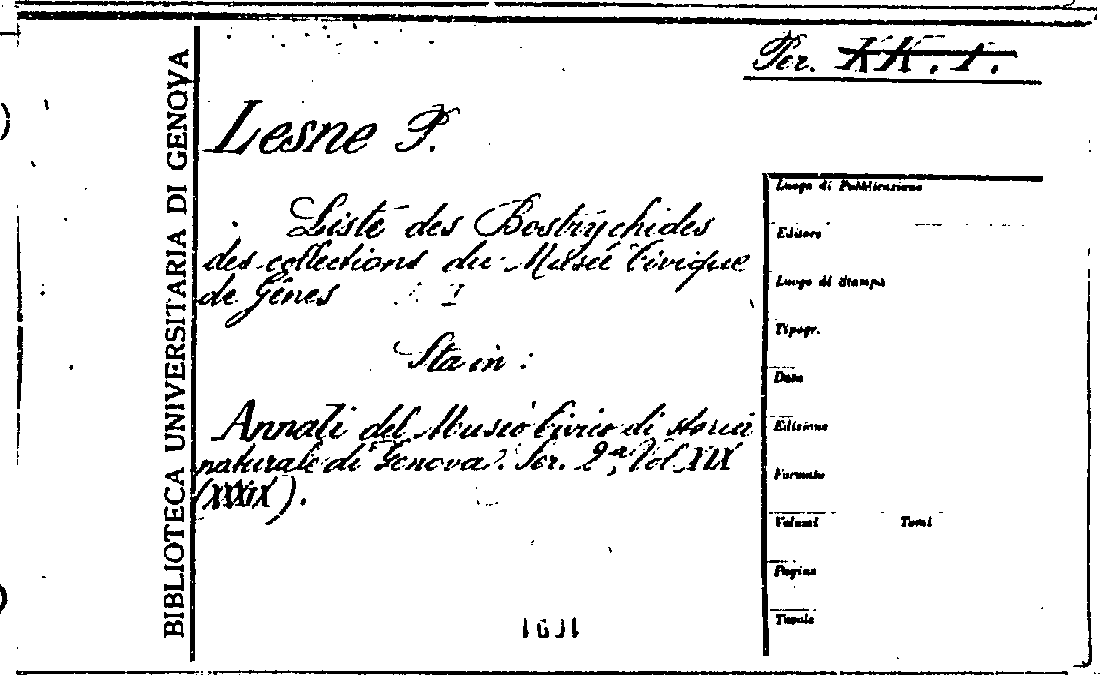 Per. XK. 1.
BIBLIOTECA UNIVERSITARIA DI GENOVA
Lesne P.
Liste des Bostrychides
des collections du Musée Civique
de Gênes
Sta in :
Annali del Museo Civico di storia
naturale di Genova. Ser. 2ª, Vol XIX
(XXXIX).
Luogo di Pubblicazione
Editore
Luogo di Stampa
Tipogr.
Data
Edizione
Formato
Volumi Tomi
Pagine
Tavole